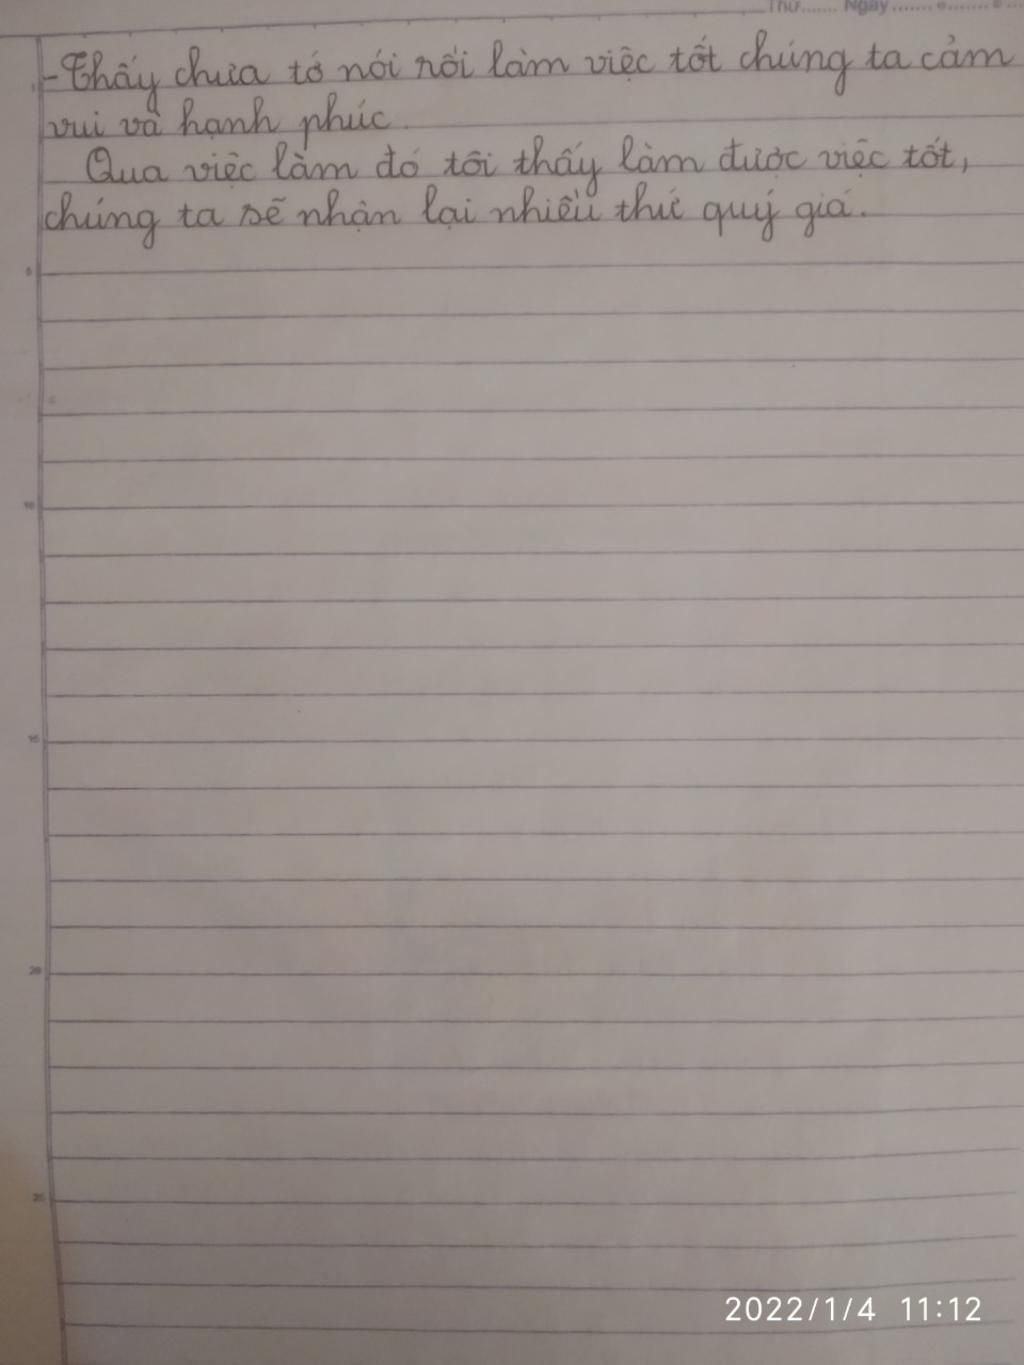 Thứ....... Ngày
- Thấy chưa tớ nói rồi làm việc tốt chúng ta cảm
vui và hạnh phúc.
Qua việc làm đó tôi thấy làm được việc tốt,
chúng ta sẽ nhận lại nhiều thứ quý giá.
5
10
15
20
25
2022/1/4 11:12